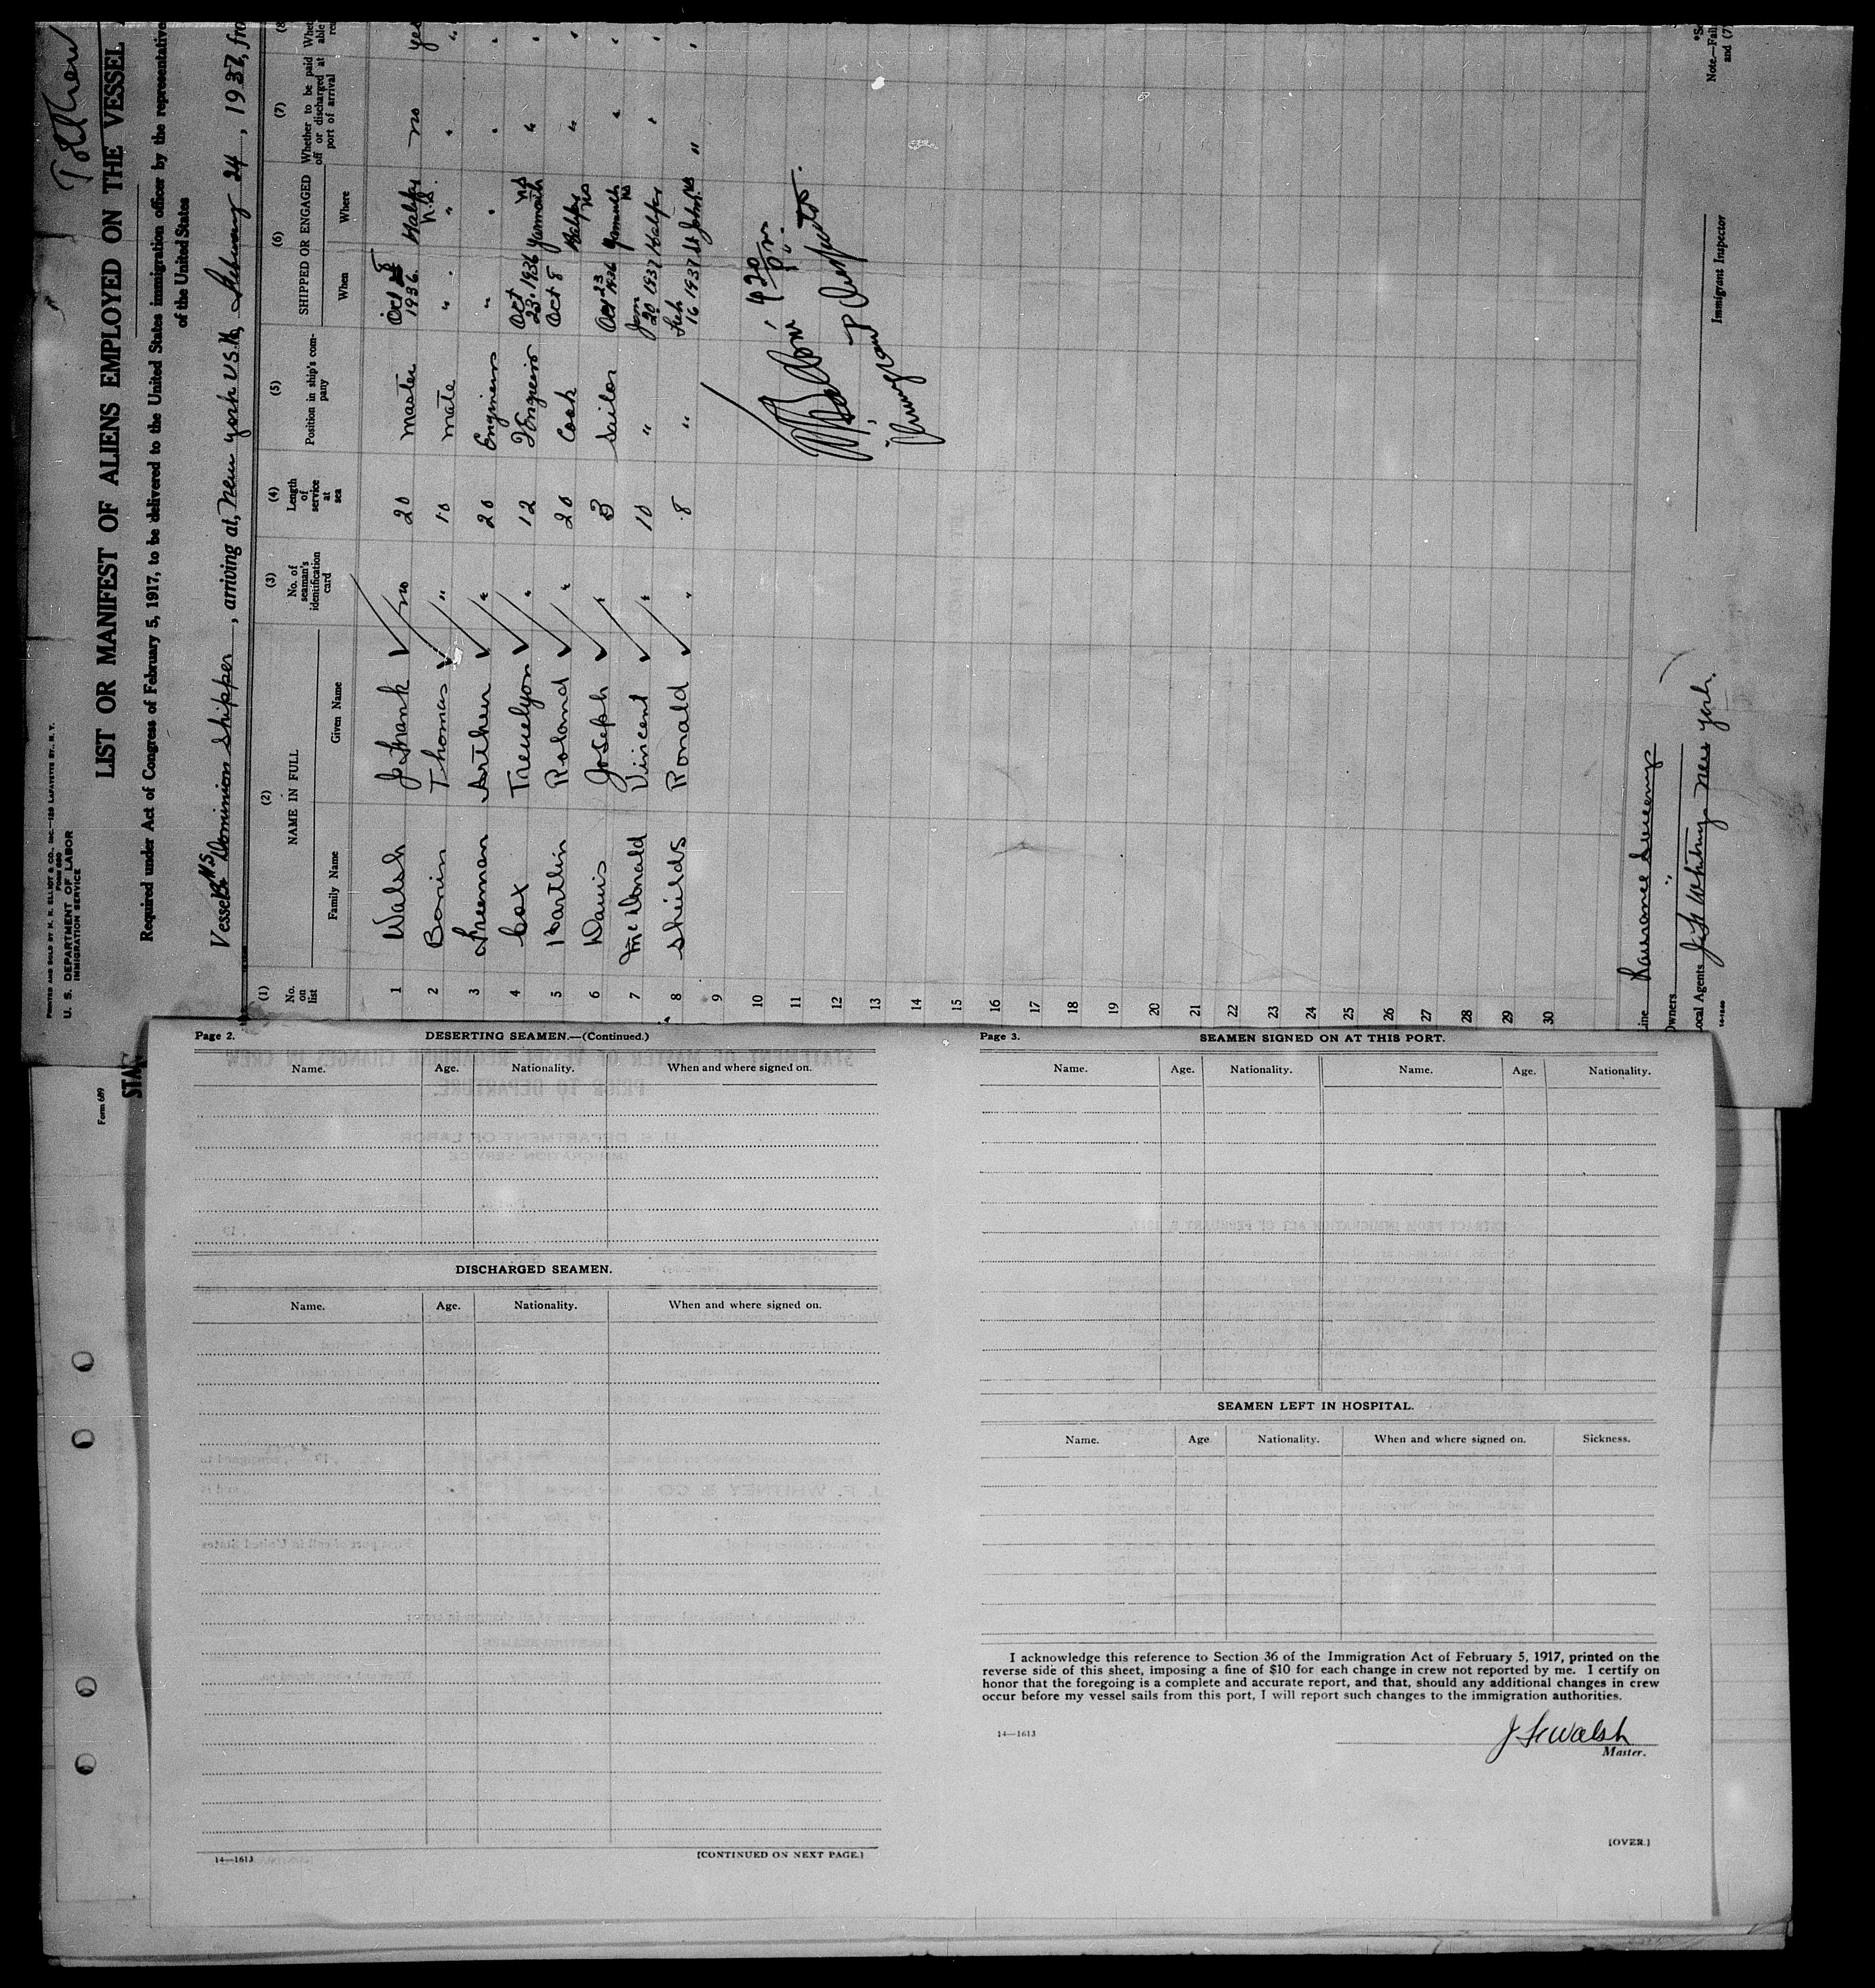 PRINTED AND SOLD BY H. R. ELLIOT & CO., INC.—129 LAFAYETTE ST., N. Y.
Form 680
U. S. DEPARTMENT OF LABOR
IMMIGRATION SERVICE
LIST OR MANIFEST OF ALIENS EMPLOYED ON THE VESSEL
Required under Act of Congress of February 5, 1917, to be delivered to the United States immigration officer by the representative
of the United States
Vessel MS Dominion Shipper, arriving at, New York U.S.A, February 24, 1937, fro
(1) (2) (3) (4) (5) (6) (7)
No. on list NAME IN FULL No. of seaman's identification card Length of service at sea Position in ship's company SHIPPED OR ENGAGED Whether to be paid off or discharged at port of arrival
Family Name Given Name When Where
1 Walsh J Frank no 20 master Oct 8 1936 Halifax N.S. no yes
2 Thomas " 10 mate " " " "
3 Freeman Arthur " 20 Engineer " " " "
4 Cox " 12 2 Engineer Oct 23. 1936 Yarmouth NS " "
5 Roland " 20 Cook Oct 8 Halifax NS " "
6 Davis Joseph " 3 Sailor Oct 23 1936 Yarmouth NS " "
7 McDonald Vincent " 10 " Jan 20 1937 Halifax " "
8 Shields Ronald " 8 " Feb 16 1937 St John NB " "
9
10
11
12
13
14
15
16
17
18
19
20
21
22
23
24
25
26
27
28
29
30
4 20 pm
Immigrant Inspector
Line
Owners "
Local Agents J F Whitney New York.
14-1240
Immigrant Inspector
Note.—Fail
and (7)
Form 689
STAT
Page 2. DESERTING SEAMEN.—(Continued.)
Name. Age. Nationality. When and where signed on.
DISCHARGED SEAMEN.
Name. Age. Nationality. When and where signed on.
14—1613
[CONTINUED ON NEXT PAGE.]
Page 3. SEAMEN SIGNED ON AT THIS PORT.
Name. Age. Nationality. Name. Age. Nationality.
SEAMEN LEFT IN HOSPITAL.
Name. Age Nationality. When and where signed on. Sickness.
I acknowledge this reference to Section 36 of the Immigration Act of February 5, 1917, printed on the
reverse side of this sheet, imposing a fine of $10 for each change in crew not reported by me. I certify on
honor that the foregoing is a complete and accurate report, and that, should any additional changes in crew
occur before my vessel sails from this port, I will report such changes to the immigration authorities.
14—1613
J F Walsh
Master.
[OVER.]